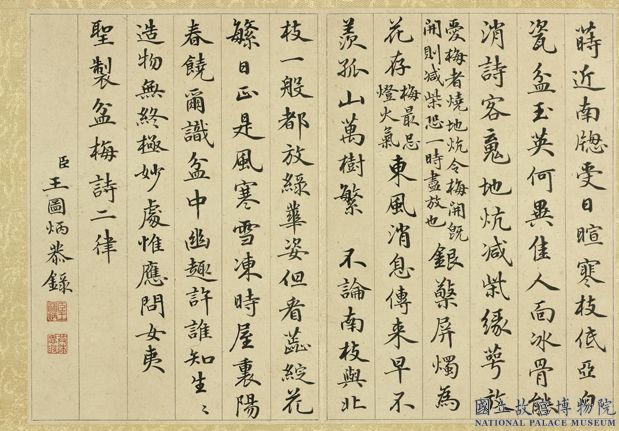 蒔近南牕受日暄寒枝低亞白
瓷盆玉英何異佳人面冰骨能
消詩客䰟地炕减柴緣萼放
愛梅者燒地炕令梅開旣
開則减柴恐一時盡放也
銀檠屏燭為
花存
梅最忌
燈火氣
東風消息傳来早不
羨孤山萬樹繁 不論南枝與北
枝一般都放綠華姿但看蘂綻花
繁日正是風寒雪凍時屋裏陽
春饒爾識盆中幽趣許誰知生〻
造物無終極妙處惟應問女夷
聖製盆梅詩二律
臣王圖炳恭錄
國立故宮博物院
NATIONAL PALACE MUSEUM